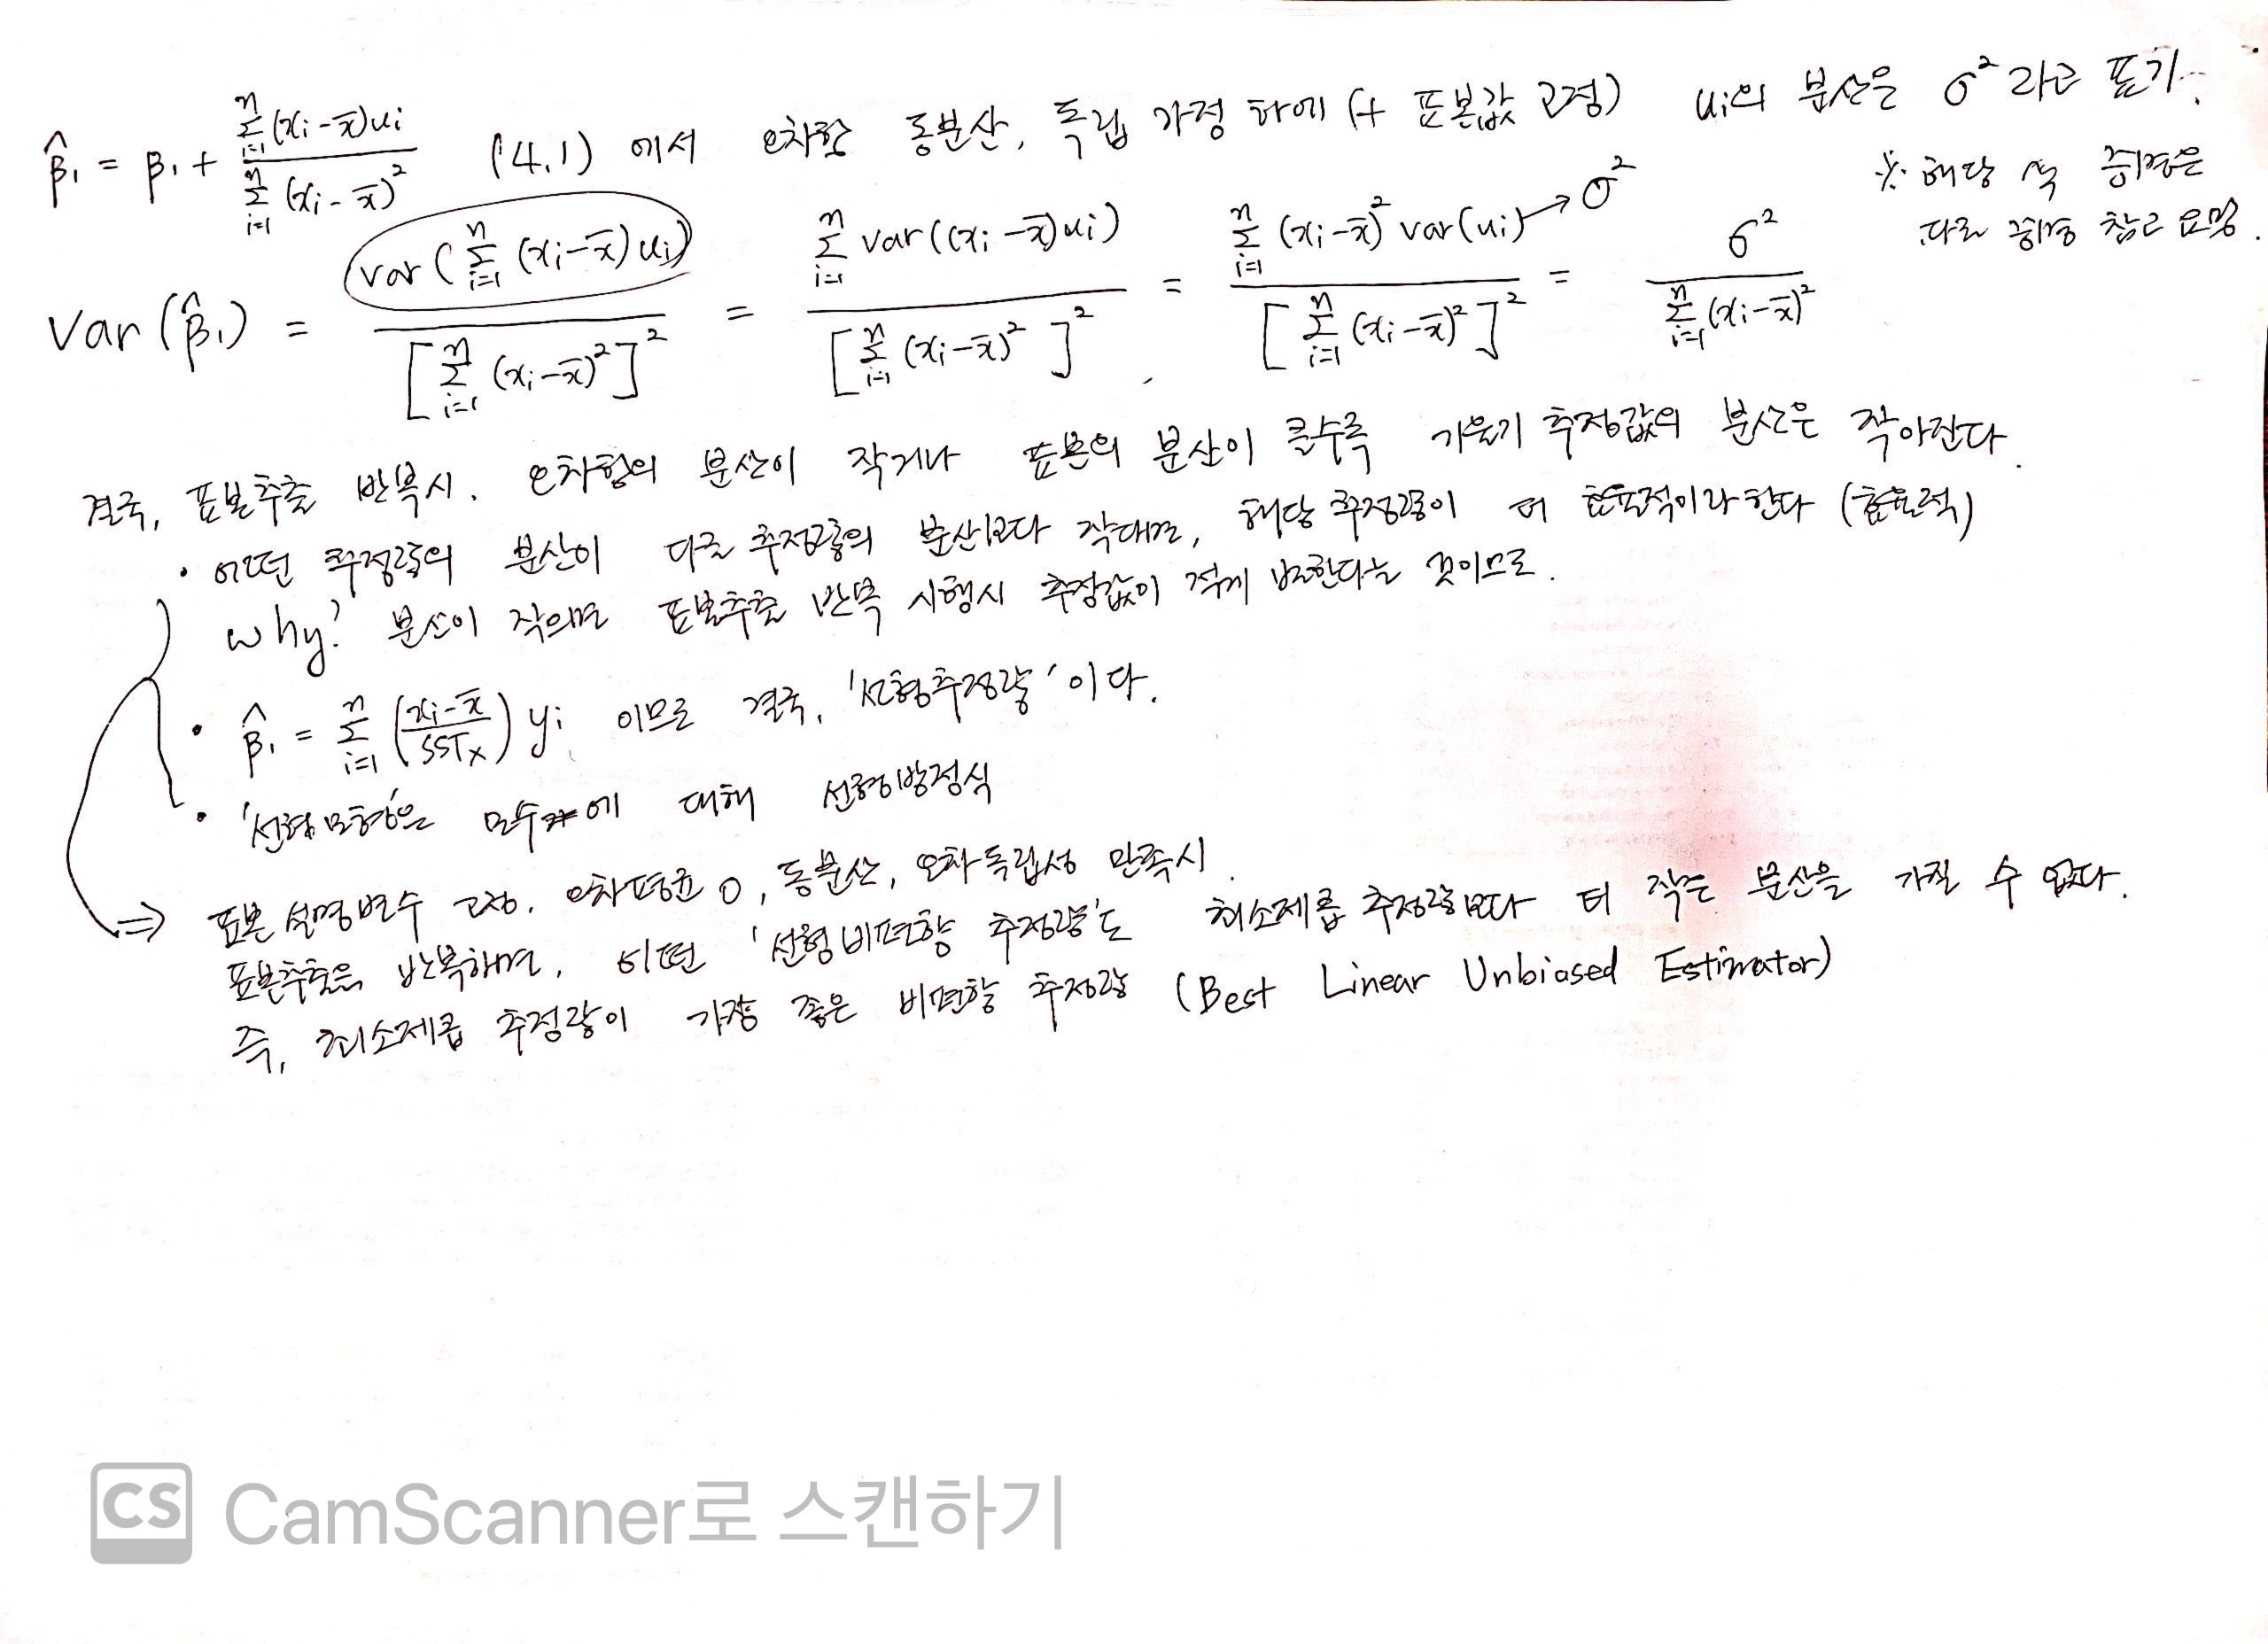 β̂₁ = β₁ + Σᵢ₌₁ⁿ(xᵢ-x̄)uᵢ / Σᵢ₌₁ⁿ(xᵢ-x̄)² (4.1) 에서 오차항 동분산, 독립 가정 하에 (+ 표본값 고정) uᵢ의 분산은 σ² 라고 표기.
※ 해당 식 증명은
다른 증명 참고 요망.
Var(β̂₁) = var(Σᵢ₌₁ⁿ(xᵢ-x̄)uᵢ) / [Σᵢ₌₁ⁿ(xᵢ-x̄)²]² = Σᵢ₌₁ⁿ var((xᵢ-x̄)uᵢ) / [Σᵢ₌₁ⁿ(xᵢ-x̄)²]² = Σᵢ₌₁ⁿ(xᵢ-x̄)² var(uᵢ) → σ² / [Σᵢ₌₁ⁿ(xᵢ-x̄)²]² = σ² / Σᵢ₌₁ⁿ(xᵢ-x̄)²
결국, 표본추출 반복시. 오차항의 분산이 작거나 표본의 분산이 클수록 기울기 추정값의 분산은 작아진다.
• 어떤 추정량의 분산이 다른 추정량의 분산보다 작다면, 해당 추정량이 더 효율적이라 한다 (효율적)
why? 분산이 작으면 표본추출 반복 시행시 추정값이 적게 변한다는 것이므로.
• β̂₁ = Σᵢ₌₁ⁿ((xᵢ-x̄)/SSTₓ) yᵢ 이므로 결국, '선형추정량'이다.
• '선형모형'은 모수에 대해 선형방정식
⇒ 표본 설명변수 고정. 오차평균 0, 동분산, 오차독립성 만족시.
표본추출을 반복하면, 어떤 '선형비편향 추정량'도 최소제곱 추정량보다 더 작은 분산을 가질 수 없다.
즉, 최소제곱 추정량이 가장 좋은 비편향 추정량 (Best Linear Unbiased Estimator)
CS CamScanner로 스캔하기